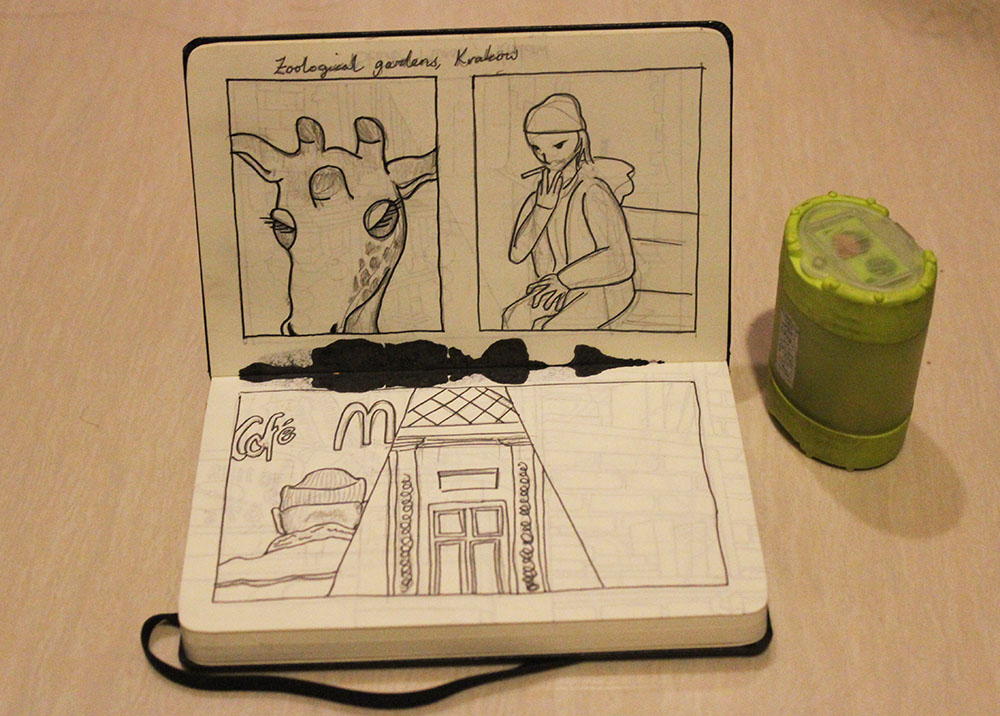 Zoological gardens, Kraków
Café M